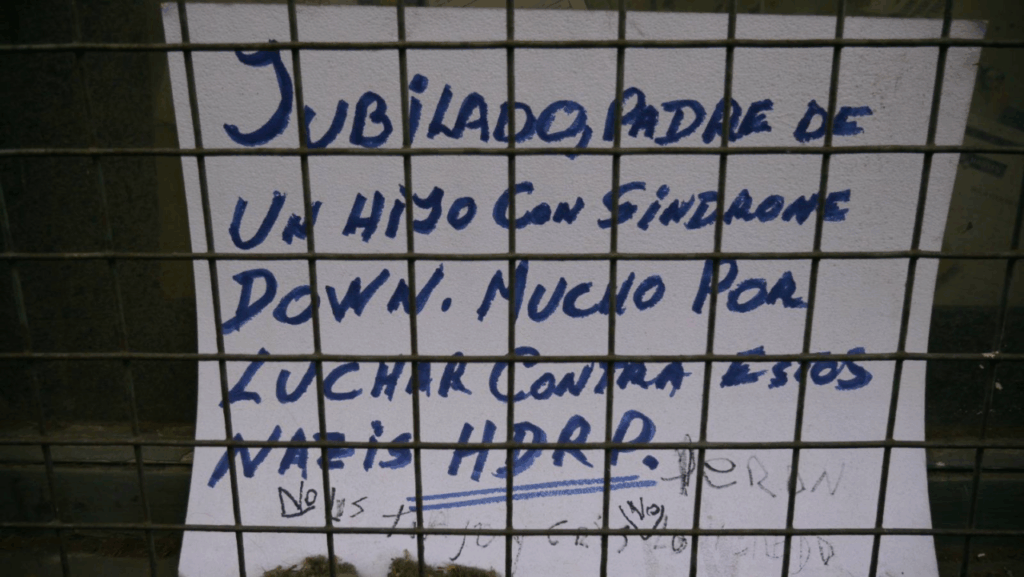 JUBILADO, PADRE DE
UN HIJO CON SINDRONE
DOWN. MUCHO POR
LUCHAR CONTRA ESTOS
NAZIS HDRP.
PERON
No los